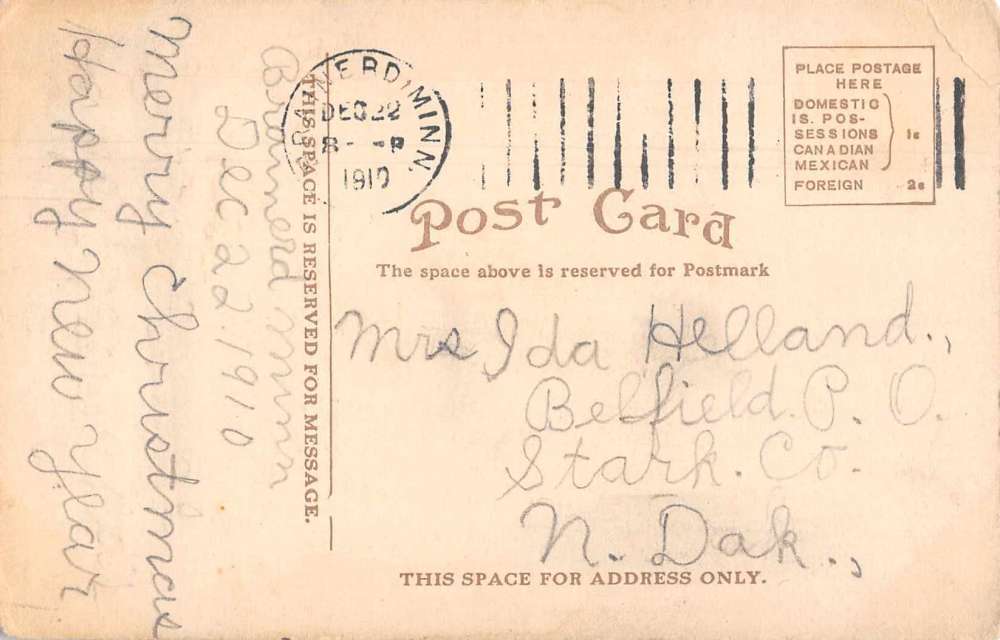 Brainerd Minn
Dec 22 1910
Merry Christmas
Happy New Year
THIS SPACE IS RESERVED FOR MESSAGE.
BRAINERD, MINN.
DEC 22
8 - P
1910
PLACE POSTAGE
HERE
DOMESTIC
IS. POS-
SESSIONS
CANADIAN
MEXICAN
1c
FOREIGN 2c
Post Card
The space above is reserved for Postmark
Mrs Ida Helland.,
Belfield. P. O.
Stark. Co.
N. Dak.,
THIS SPACE FOR ADDRESS ONLY.